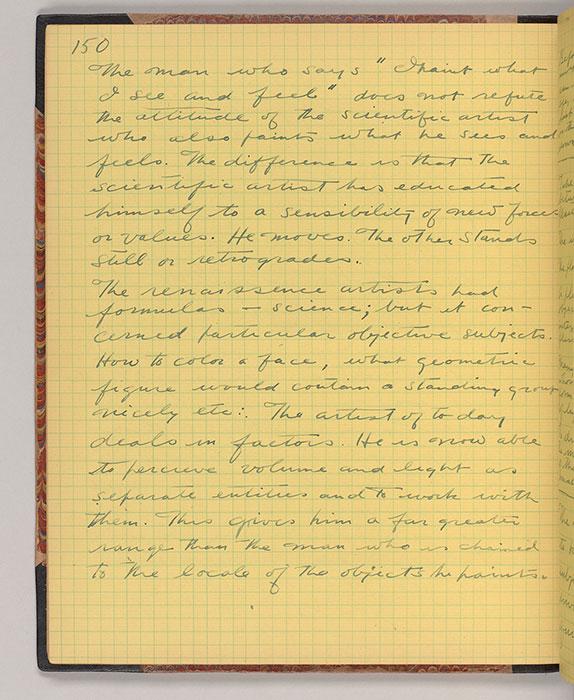 150
The man who says "I paint what
I see and feel" does not refute
the attitude of the scientific artist
who also paints what he sees and
feels. The difference is that the
scientific artist has educated
himself to a sensibility of new forces
or values. He moves. The other stands
still or retrogrades.
The renaissence artists had
formulas – science; but it con-
cerned particular objective subjects.
How to color a face, what geometric
figure would contain a standing group
nicely etc:. The artist of to day
deals in factors. He is now able
to percieve volume and light as
separate entities and to work with
them. This gives him a far greater
range than the man who is chained
to the locale of the objects he paints.